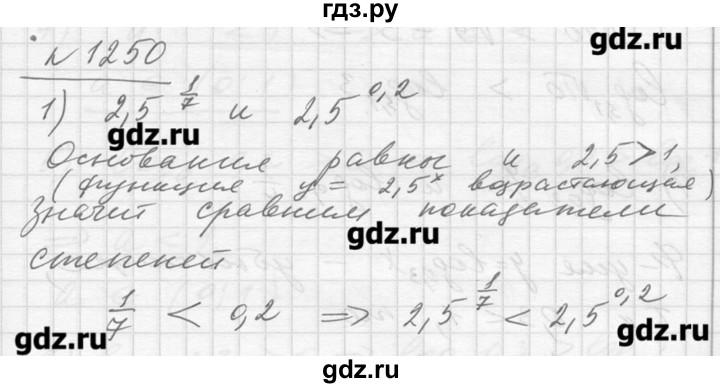 гдз.ру
gdz.ru
№ 1250
1) 2,5^(1/7) и 2,5^0,2
gdz.ru
Основания равны и 2,5 > 1,
(функция y = 2,5^x возрастающая)
значит сравним показатели
gdz.ru
степеней
1/7 < 0,2 => 2,5^(1/7) < 2,5^0,2
gdz.ru
gdz.ru
gdz.ru